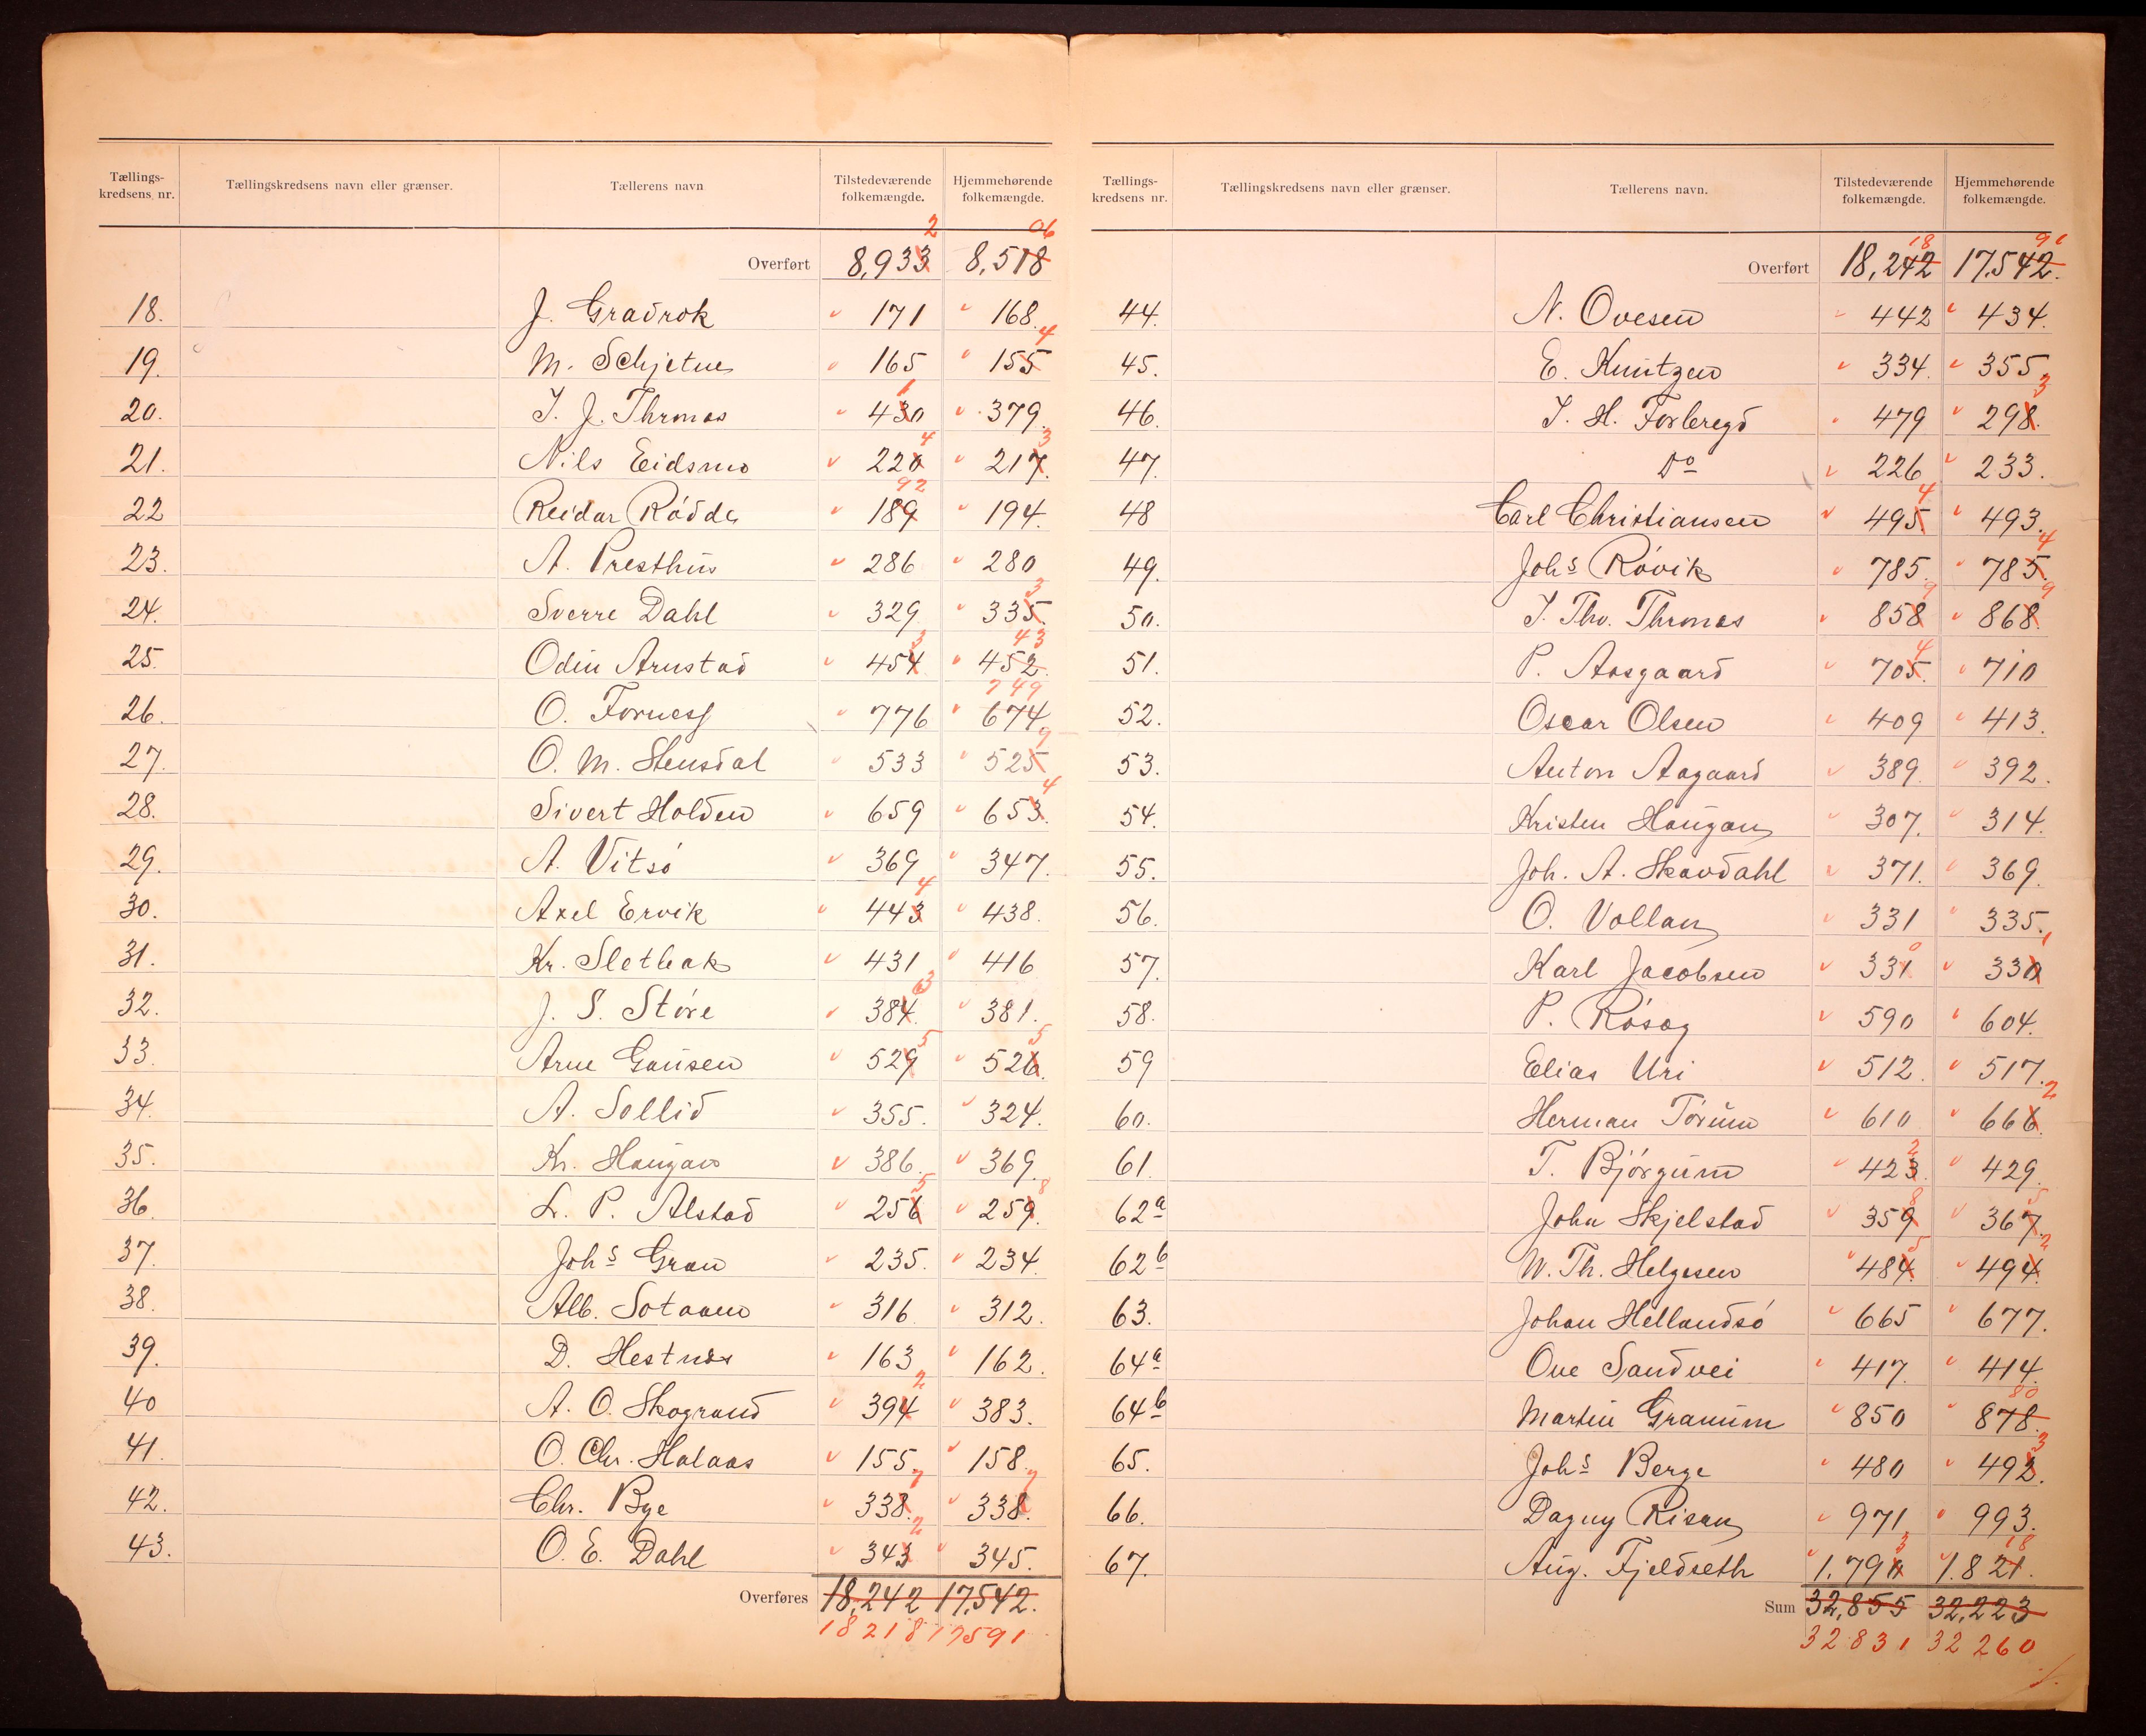 Tællings-
kredsens nr. Tællingskredsens navn eller grænser. Tællerens navn Tilstedeværende folkemængde. Hjemmehørende folkemængde.
2 06
Overført 8,933 8,518
18. J. Gradrok 171 168.
19. M. Schjetne 165 155 4
20. T. J. Thrones 430 1 379.
21. Nils Eidsmo 220 4 217. 3
22 Reidar Rödde 189 92 194.
23. A. Presthus 286 280
24. Sverre Dahl 329 335. 3
25. Odin Arnstad 454 3 452. 43
26. O. Forness 776 674 749
27. O. M. Stensdal 533 525 9
28. Sivert Holden 659 653. 4
29. A. Vitsö 369 347.
30. Axel Ervik 443 4 438.
31. Kr. Slethak 431 416
32. J. S. Störe 384. 3 381.
33. Arne Gausen 529 5 526. 5
34. A. Sollid 355. 324.
35. Kr. Haugan 386. 369.
36. L. P. Alstad 256 5 259. 8
37. Johs Gran 235. 234.
38. Alb. Sotaaen 316 312.
39. D. Hestnes 163 162.
40 A. O. Skogrand 394 2 383.
41. O. Chr. Halaas 155 158.
42. Chr. Bye 338. 7 338. 7
43. O. E. Dahl 343 2 345.
Overføres 18,242 17,542.
18218 17591
Tællings-
kredsens nr. Tællingskredsens navn eller grænser. Tællerens navn. Tilstedeværende folkemængde. Hjemmehørende folkemængde.
18 91
Overført 18,242 17,542.
44. N. Ovesen 442 434.
45. E. Knutzen 334. 355
46. J. H. Forbregd 479 298. 3
47. Do 226 233.
48 Carl Christiansen 495. 4 493.
49. Johs Rövik 785. 785. 4
50. J. Thv. Thrones 858 9 868. 9
51. P. Aasgaard 705. 4 710
52. Oscar Olsen 409 413.
53. Anton Aagaard 389. 392.
54. Kristen Haugan 307. 314.
55. Joh. A. Skavdahl 371. 369.
56. O. Vollan 331 335.
57. Karl Jacobsen 331 0 330 1
58. P. Rösag 590 604.
59 Elias Uri 512. 517.
60. Herman Törum 610 666. 2
61. T. Bjørgum 423. 2 429.
62a John Skjelstad 359 8 367. 5
62b W. Th. Helgesen 484. 5 494. 2
63. Johan Hellandsö 665 677.
64a Ove Sandvei 417. 414.
64b Martin Granum 850 878. 80
65. Johs Berge 480 492. 3
66. Dagny Risan 971 993.
67. Aug. Fjeldseth 1.791 3 1.821. 18
Sum 32,855 32,223
32831 32260